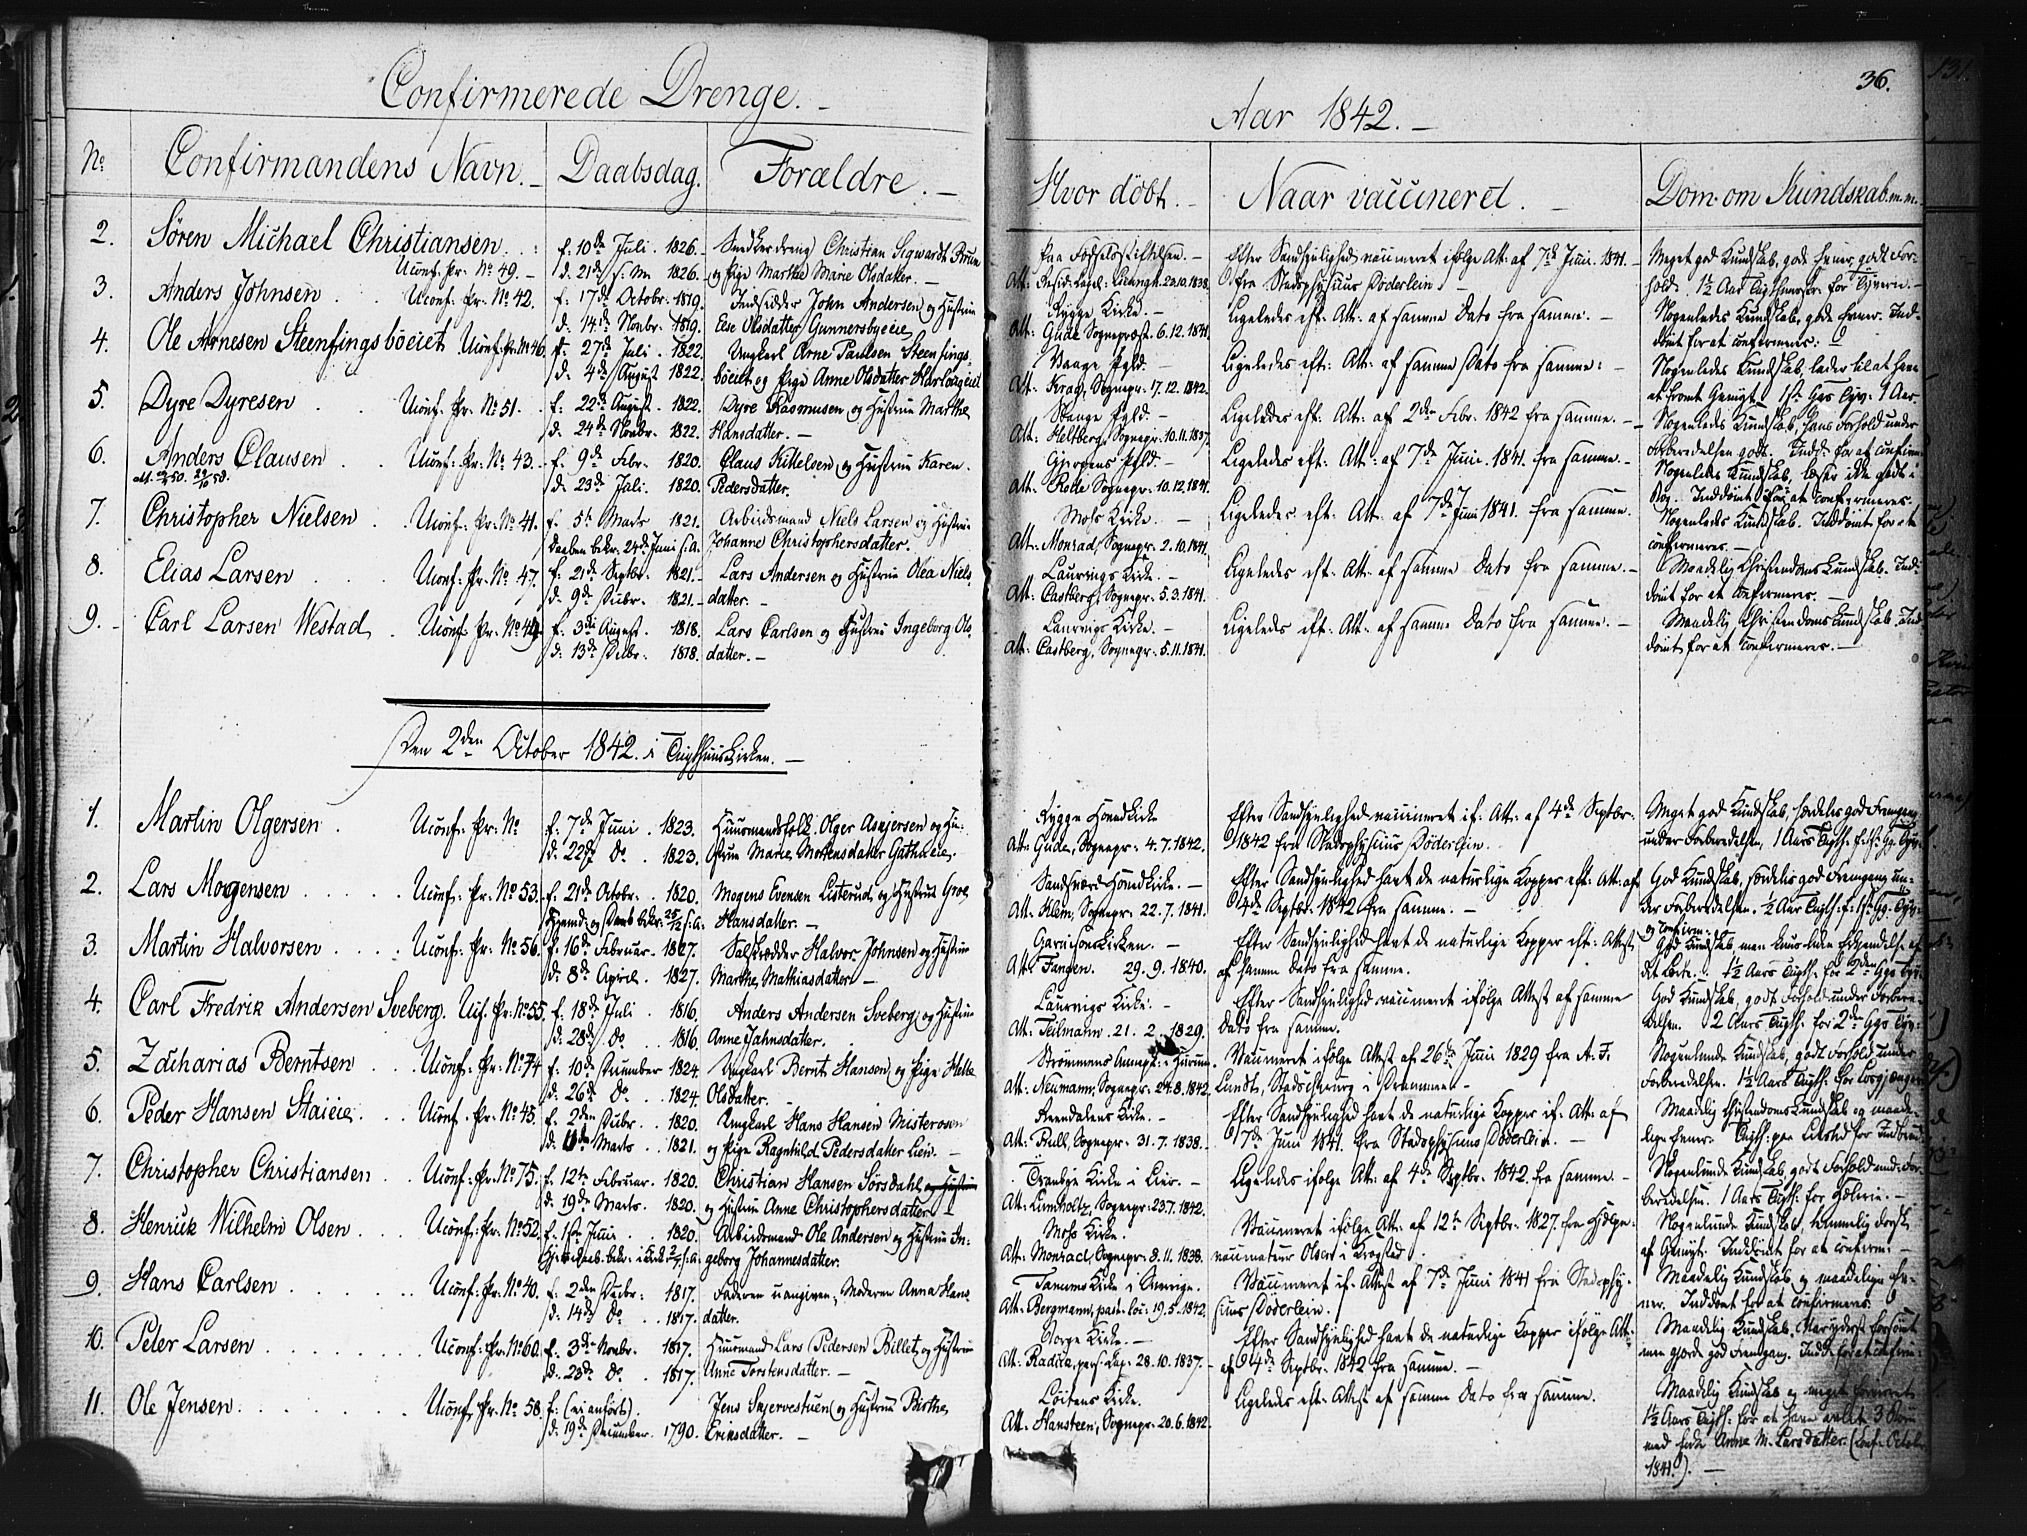 Confirmerede Drenge. –
Aar 1842. –
36.
No
Confirmandens Navn. –
Daabsdag.
Forældre. –
Hvor döbt. –
Naar vaccineret. –
Dom om Kundskab. m. m.
2. Sören Michael Christiansen
Uconf: Pr: No 49. –
f: 10de Juli 1826.
d. 21de 1826.
Christian Sigwardt Bruun
og Pige Marthe Marie Olsdatter. –
Paa Födselsstiftelsen. –
20.10.1838.
Efter Sandsynlighed vaccineret ifölge Att: af 7de Juni 1841. –
fra Stadsphysicus Döderlein. –
Meget god Kundskab, gode Evner, godt For-
hold. 1½ Aar Tugthuusstr: for Tyverie. –
3. Anders Johnsen Uconf: Pr: No 42.
f: 17de Octobr: 1819.
d: 14de Novbr: 1819.
Indsidder John Andersen og Hustrue
Else Olsdatter Gunnersbyeeie
Rygge Kirke. –
Att: Gude Sogneprost. 6.12.1841.
Ligeledes eft: Att: af samme Dato fra samme. –
Nogenledes Kundskab, gode Evner. Ind-
dömt for at confirmeres:
4. Ole Arnesen Steenfingsböeiet Uconf: Pr: No 46.
f: 27de Juli 1822.
d: 4de August 1822.
Ungkarl Arne Paulsen Steenfings
böeiet og Pige Anne Olsdatter
Vaage Pgld: –
Att: Krag, Sognepr: 17.12.1842.
Ligeledes eft: Att: af samme Dato fra samme:
Nogenledes Kundskab, lader til at have
1ste Ggs Tyv: 1 Aar
5. Dyre Dyresen Uconf: Pr: No 51.
f: 22de August 1822.
d: 24de Novbr: 1822.
Dyre Rasmusen og Hustrue Marthe
Hansdatter. –
Stange Pgld: –
Att: Heltberg, Sognepr: 10.11.1837.
Ligeledes eft: Att: af 2den Febr: 1842 fra samme. –
Nogenledes Kundskab, hans Forhold under
Forberedelsen godt. Indd: for at confirm:
6. Anders Clausen Uconf: Pr: No 43.
f: 9de Febr: 1820.
d: 23de Juli. 1820.
Claus Kittelsen og Hustrue Karen
Pedersdatter.
Gjerpens Pgld: –
Att: Rode Sognepr: 10.12.1841.
Ligeledes eft: Att: af 7de Juni 1841. fra samme. –
Nogenledes Kundskab, læser ikke godt i
Bog. Inddömt for at confirmeres.
7. Christopher Nielsen Uconf: Pr: No 41.
f: 5te Marts 1821.
Daaben bekr: 24de Juni s: A.
Arbeidsmand Niels Larsen og Hustrue
Johanne Christophersdatter.
Moss Kirke. –
Att: Monrad, Sognepr: 2.10.1841.
Ligeledes eft: Att: af 7de Juni 1841. fra samme.
Nogenledes Kundskab. Inddömt for at
confirmeres. –
8. Elias Larsen Uconf: Pr: No 47.
f: 21de Septbr: 1821. –
d: 9de Decbr: 1821. –
Lars Andersen og Hustrue Olea Niels
datter. –
Laurvigs Kirke. –
Att: Castberg, Sognepr: 5.3.1841.
Ligeledes eft: Att: af samme Dato fra samme. –
Maadelig Christendomskundskab. Ind-
dömt for at confirmeres. –
9. Carl Larsen Westad Uconf: Pr: No 44.
f: 3die August 1818.
d: 13de Decbr: 1818.
Lars Carlsen og Hustrue Ingeborg Ols
datter. –
Laurvigs Kirke. –
Att: Castberg, Sognepr: 5.11.1841.
Ligeledes eft: Att: af samme Dato fra samme. –
Maadelig Christendomskundskab. Ind-
dömt for at confirmeres. –
Den 2den October 1842. i Tugthuuskirken. –
1. Martin Olgersen Uconf: Pr: No
f: 7de Juni 1823.
d: 22de Do 1823.
Huusmandsfolk Olger Asgjersen og Hu-
strue Marie Mortensdatter
Rygge Hovedkirke
Att: Gude, Sognepr: 4.7.1842.
Efter Sandsynlighed vaccineret if: Att: af 4de Septbr:
1842 fra Stadsphysicus Döderlein.
Meget god Kundskab, særdeles god Fremgang
under Forberedelsen, 1 Aars Tugth: f: 1ste Gg Tyv:
2. Lars Mogensen Uconf: Pr: No 53.
f: 21de Octobr: 1820.
Mogens Evensen Listerud og Hustrue Groe
Hansdatter. –
Sandsværds Hovedkirke. –
Att: Klem, Sognepr: 22.7.1841.
Efter Sandsynlighed havt de naturlige Kopper eft: Att: af
4de Septbr: 1842 fra samme. –
God Kundskab, særdeles god Fremgang un-
der Forberedelsen. ½ Aar Tugth: f: 1ste Gg. Tyv:
3. Martin Halvorsen Uconf: Pr: No 56.
f: 16de Februar 1827.
d: 8de April 1827.
Halvor Johnsen og Hustrue
Marthe Mathiasdatter –
Garnisonskirken. –
Att: Fangen. 29.9.1840.
Efter Sandsynlighed havt de naturlige Kopper eft: Attest
af samme Dato fra samme.
1½ Aars Tugth: for 2den Ggs Tyv:
4. Carl Fredrik Andersen Sveberg. Ucf. Pr: No 55.
f. 18de Juli 1816.
d: 28de Do 1816.
Anders Andersen Sveberg og Hustrue
Anne Jahnsdatter.
Laurvigs Kirke. –
Att: Teilmann 21. 2. 1829.
Efter Sandsynlighed vaccineret ifölge Attest af samme
Dato fra samme.
God Kundskab, godt Forhold under Forbere-
delsen. 2 Aars Tugth: for 2den Ggs Tyv-
5. Zacharias Berntsen Uconf: Pr: No 74
f: 10de December 1824.
d: 26de Do 1824.
Ungkarl Bernt Hansen og Pige Helle
Olsdatter. –
Strömmens Annexk: i Hurum
Att: Neumann, Sognepr: 24.8.1842.
Vaccineret ifölge Attest af 26de Juni 1829 fra A. F.
Lundt, Stadschirurg i Drammen –
Nogenlunde Kundskab, godt Forhold under
Forberedelsen. 1½ Aars Tugth: for Losgjængerie
6. Peder Hansen Staieie Uconf: Pr: No 45.
f. 2den Decbr: 1820.
d: Marts 1821.
Ungkarl Hans Hansen Misteroen
og Pige Ragnhild Pedersdatter Lien. –
Arendalens Kirke. –
Att: Bull, Sognepr: 31.7.1838.
Efter Sandsynlighed havt de naturlige Kopper if: Att: af
7de Juni 1841. fra Stadsphysicus Döderlein. –
Maadelig Christendoms Kundskab og maade-
lige Evner. Tugth: paa Livstid for Indbrud
7. Christopher Christiansen Uconf: Pr: No 75.
f: 12te Februar 1820.
d: 19de Marts. 1820.
Christian Hansen Sörsdahl og Hustrue
og Hustrue Anne Christophersdatter
Tranbye Kirke i Lier. –
Att: Lumholtz, Sognepr: 23.7.1842.
Ligeledes ifölge Att: af 4de Septbr: 1842. fra samme. –
Nogenlunde Kundskab, godt Forhold und: For-
beredelsen. 1 Aars Tugth: for Hælerie. –
8. Henrik Wilhelm Olsen Uconf: Pr: No 52.
f: 1ste Juni 1820.
Arbeidsmand Ole Andersen og Hustrue In-
geborg Johannesdatter.
Moss Kirke.
Att: Monrad, Sognepr: 8.11.1838.
Vaccineret ifölge Att: af 12te Septbr: 1827 fra Hjælpe-
vaccinateur Olsen i Krogstad.
Nogenlunde Kundskab, temmelig dorsk
af Gemyt. Inddömt for at confirm: –
9. Hans Carlsen Uconf: Pr: No 40.
f: 2den Decbr: 1817.
d: 14de Do 1817.
Faderen uangiven, Moderen Anna Hans
datter.
Tanums Kirke i Sverige.
Att: Bergmann, past: loc: 19.5.1842.
Vaccineret if: Attest af 7de Juni 1841 fra Stadsphy-
sicus Döderlein.
Maadelig Kundskab og maadelige Ev-
ner. Inddömt for at confirmeres.
10. Peter Larsen Uconf: Pr: No 60.
f: 3die Novbr: 1817.
d: 23de Do 1817.
Huusmand Lars Pedersen Billet og Hustrue
Anne Torstensdatter. –
Norge Kirke. –
28.10.1837.
Efter Sandsynlighed havt de naturlige Kopper ifölge Att:
af 4de Septbr: 1842 fra samme. –
Maadelig Kundskab,
men gjorde god Fremgang.
11. Ole Jensen Uconf: Pr: No 58.
f: (ei anfört).
d: 19de December 1790.
Jens Snjervestuen og Hustrue Birthe
Eriksdatter. –
Löitens Kirke.
Att: Hansteen, Sognepr: 20.6.1842.
Ligeledes eft: Attest af samme Dato fra samme.
Maadelig Kundskab og meget
1½ Aars Tugth: for at have avlet 3 Börn
med Anne M. Larsdatter. (Conf: Octob:
1841.). –